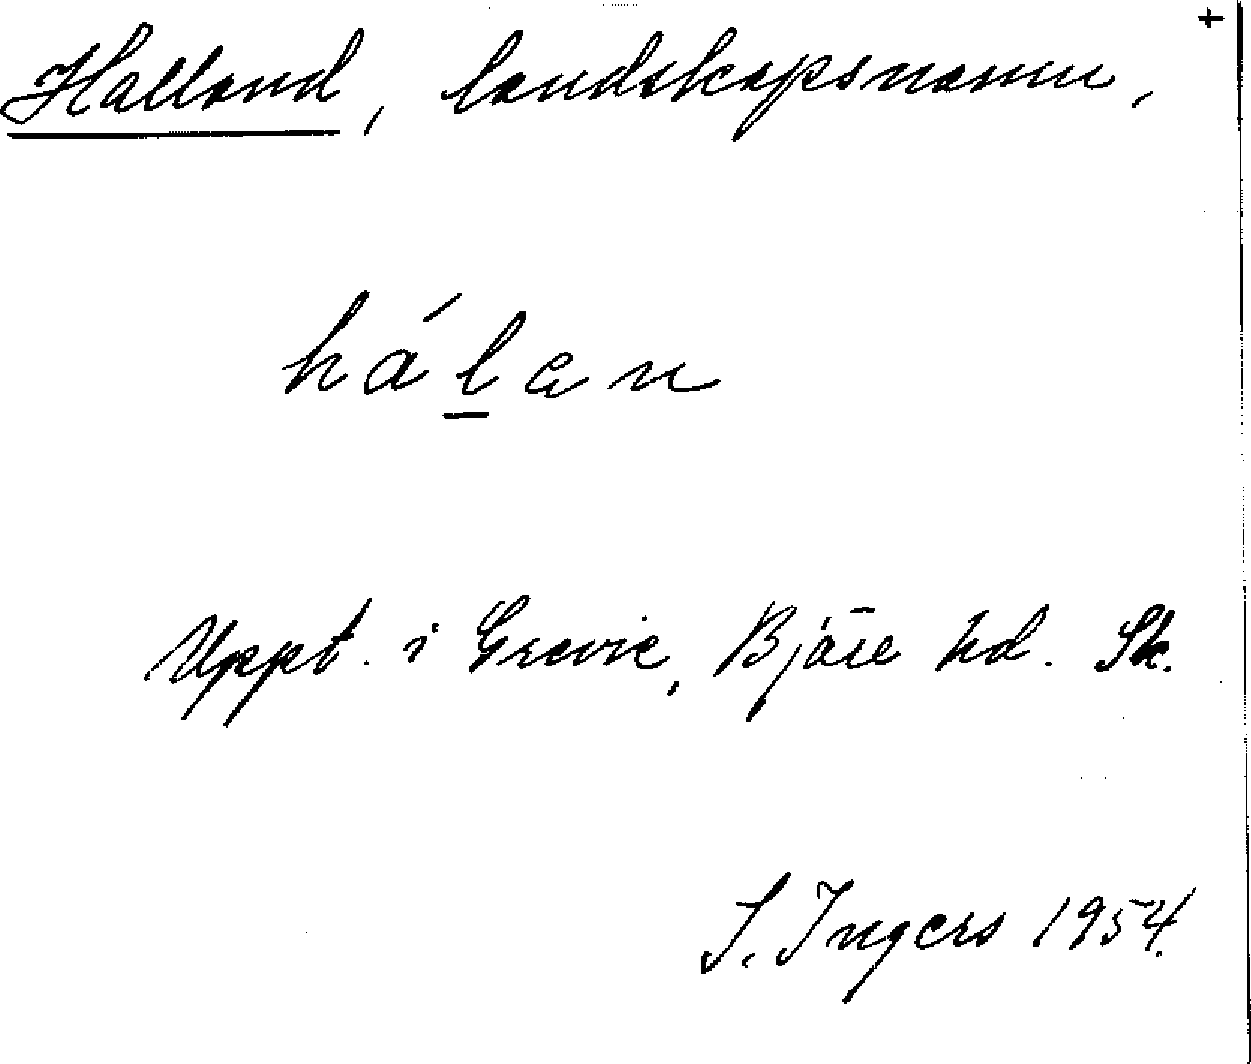 +
Halland, landskapsnamn,
hálan
Uppt. i Grevie, Bjäre hd. Sk.
I. Ingers 1954.